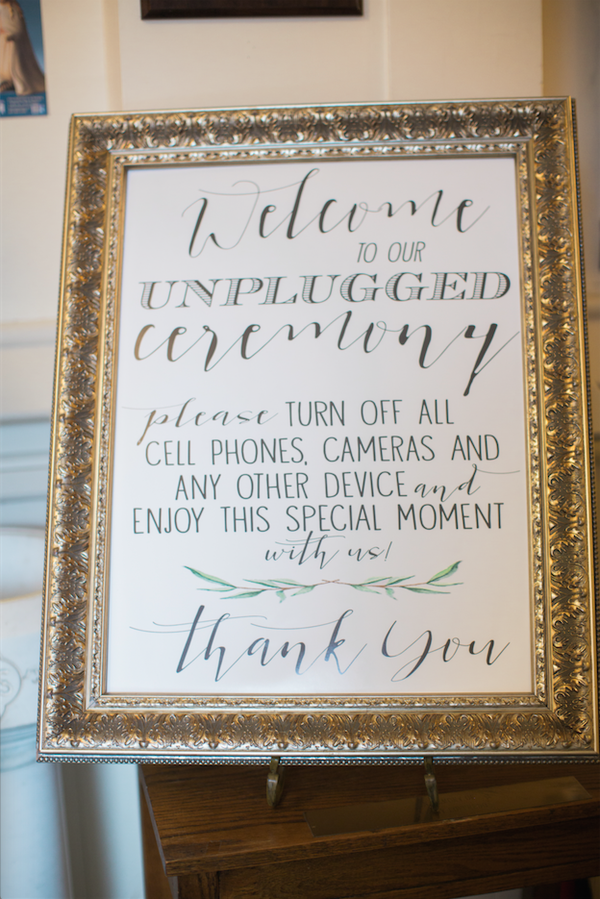 Welcome
TO OUR
UNPLUGGED
ceremony
please TURN OFF ALL
CELL PHONES, CAMERAS AND
ANY OTHER DEVICE and
ENJOY THIS SPECIAL MOMENT
with us!
Thank You